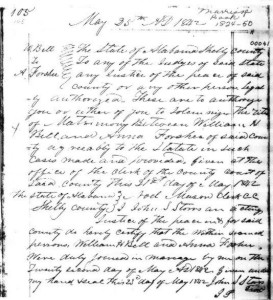 103
Marriage
Book
1824-60
May 23rd AD 1842
W Bell
The State of Alabama Shelby county
To any of the Judges of said State
&
A
any Justice of the peace of said
county or any other person legal
ly authorized These are to authorize
you or either of you to solemnize the rites
of Matrimony between William H
Bell and Anna of said Coun
ty agreeably to the Statute in such
Cases made and provided given at the
office of the Clerk of the County court of
Said county this day of May 1842
the State of Alabama Clerk CC
Shelby County I John an acting
Justice of the peace in & for said
county do hereby certify that the within named
persons, William H Bell and Anna
Were duly joined in marriage by me on the
Twenty second day of May AD 1842 Given under
my hand & seal this 23rd day of May 1842 John